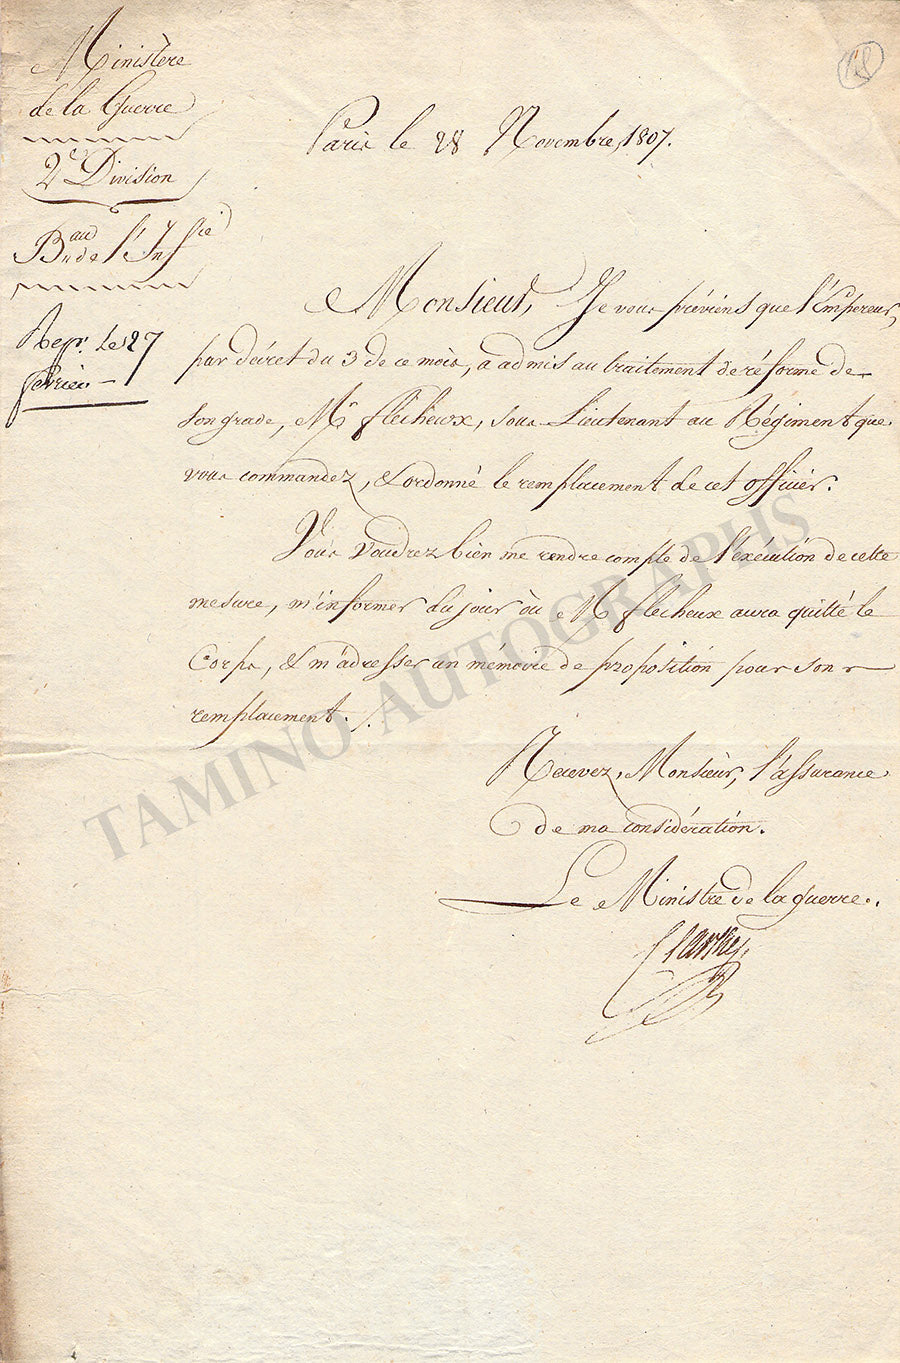 Ministère
de la Guerre
2e Division
Bau de l'Infie
Rep. le 27
fevrier
Paris le 28 Novembre, 1807.
Monsieur, Je vous préviens que l'Empereur,
par décret du 3 de ce mois, a admis au traitement de réforme de
son grade, Mr flecheux, sous Lieutenant au Régiment que
vous commandez, & ordonné le remplacement de cet officier.
Vous voudrez bien me rendre compte de l'exécution de cette
mesure, m'informer du jour où Mr flecheux aura quitté le
Corps, & m'adresser un mémoire de proposition pour son
remplacement.
Recevez, Monsieur, l'assurance
de ma considération.
Le Ministre de la guerre.
Clarke
TAMINO AUTOGRAPHS